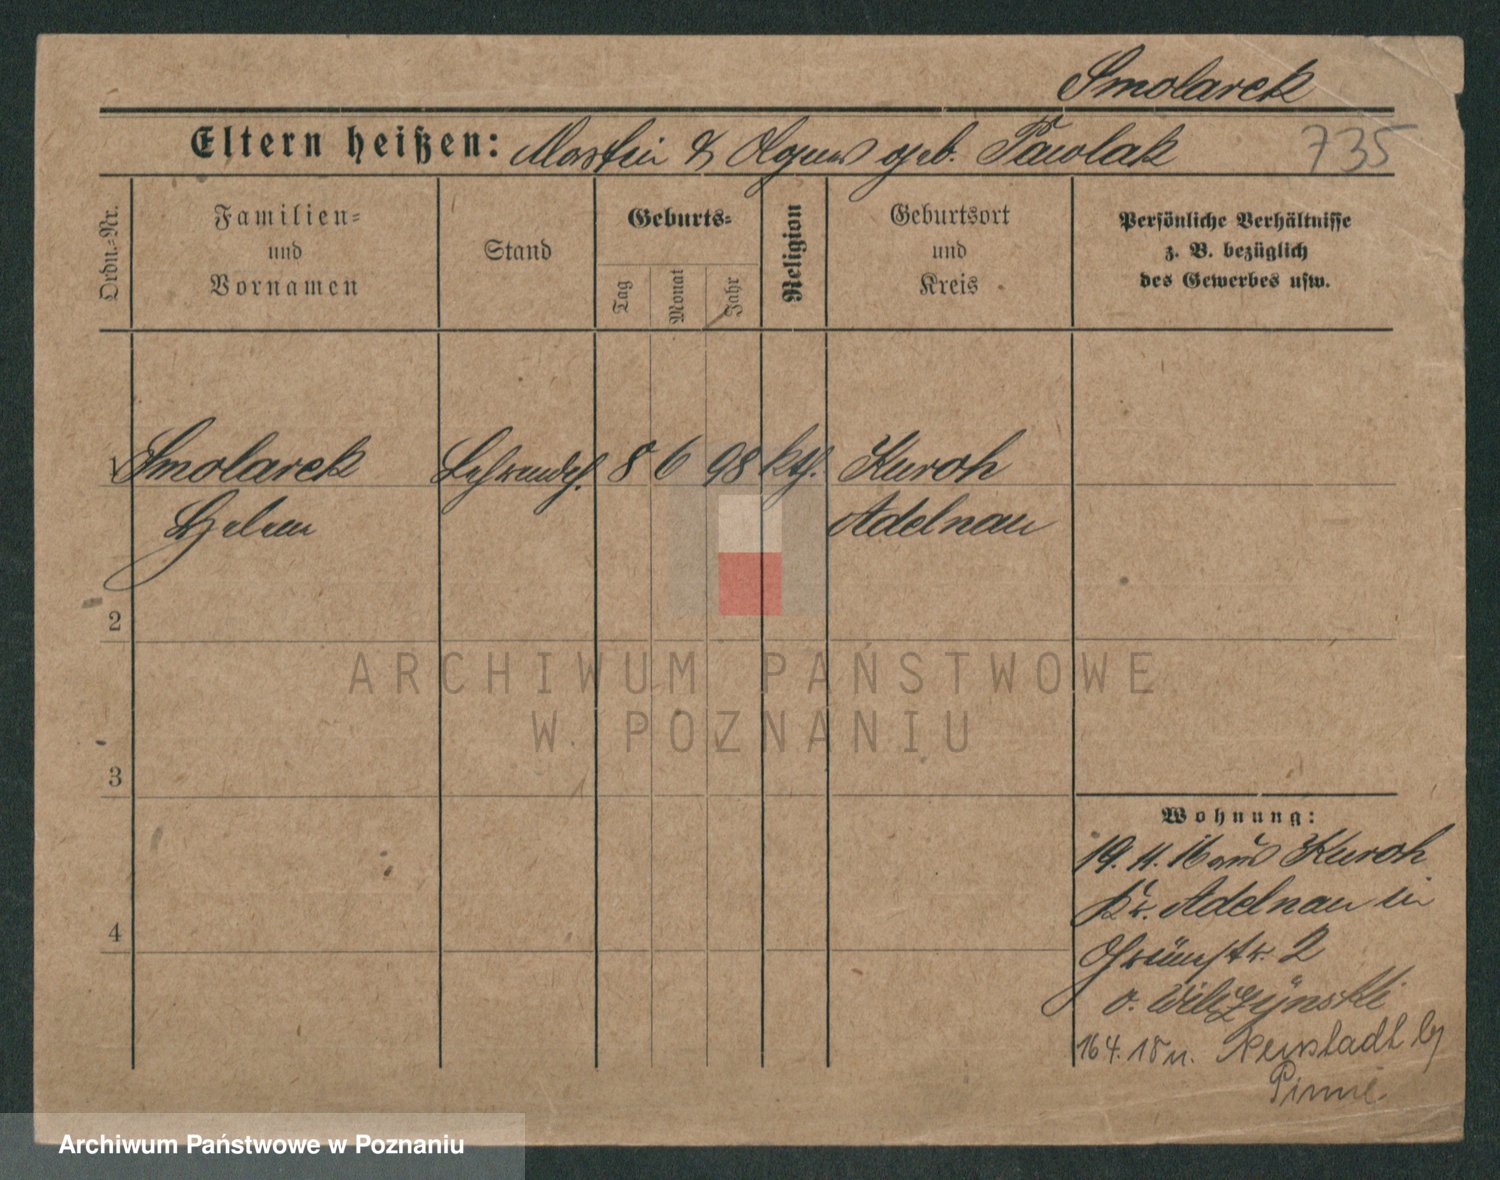 Smolarek
Eltern heißen: Martin & Agnes geb. Pawlak 735
Ordn.-Nr.
Familien-
und
Vornamen
Stand
Geburts-
Tag
Monat
Jahr
Religion
Geburtsort
und
Kreis
Persönliche Verhältnisse
z. B. bezüglich
des Gewerbes usw.
1 Smolarek 8 6 98 kth. Kuroh
Helene Adelnau
2
3
4
Wohnung:
19.11.16 aus Kuroh
Kr. Adelnau in
Grünstr. 2
v. Wilczynski
16 4. 18 n. Neustadt b/
Pinne
ARCHIWUM PAŃSTWOWE
W POZNANIU
Archiwum Państwowe w Poznaniu